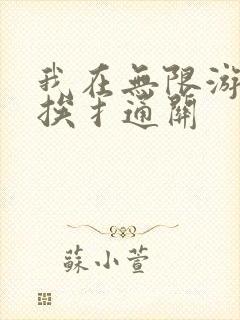 我在無限游
挨扌通關
蘇小萱